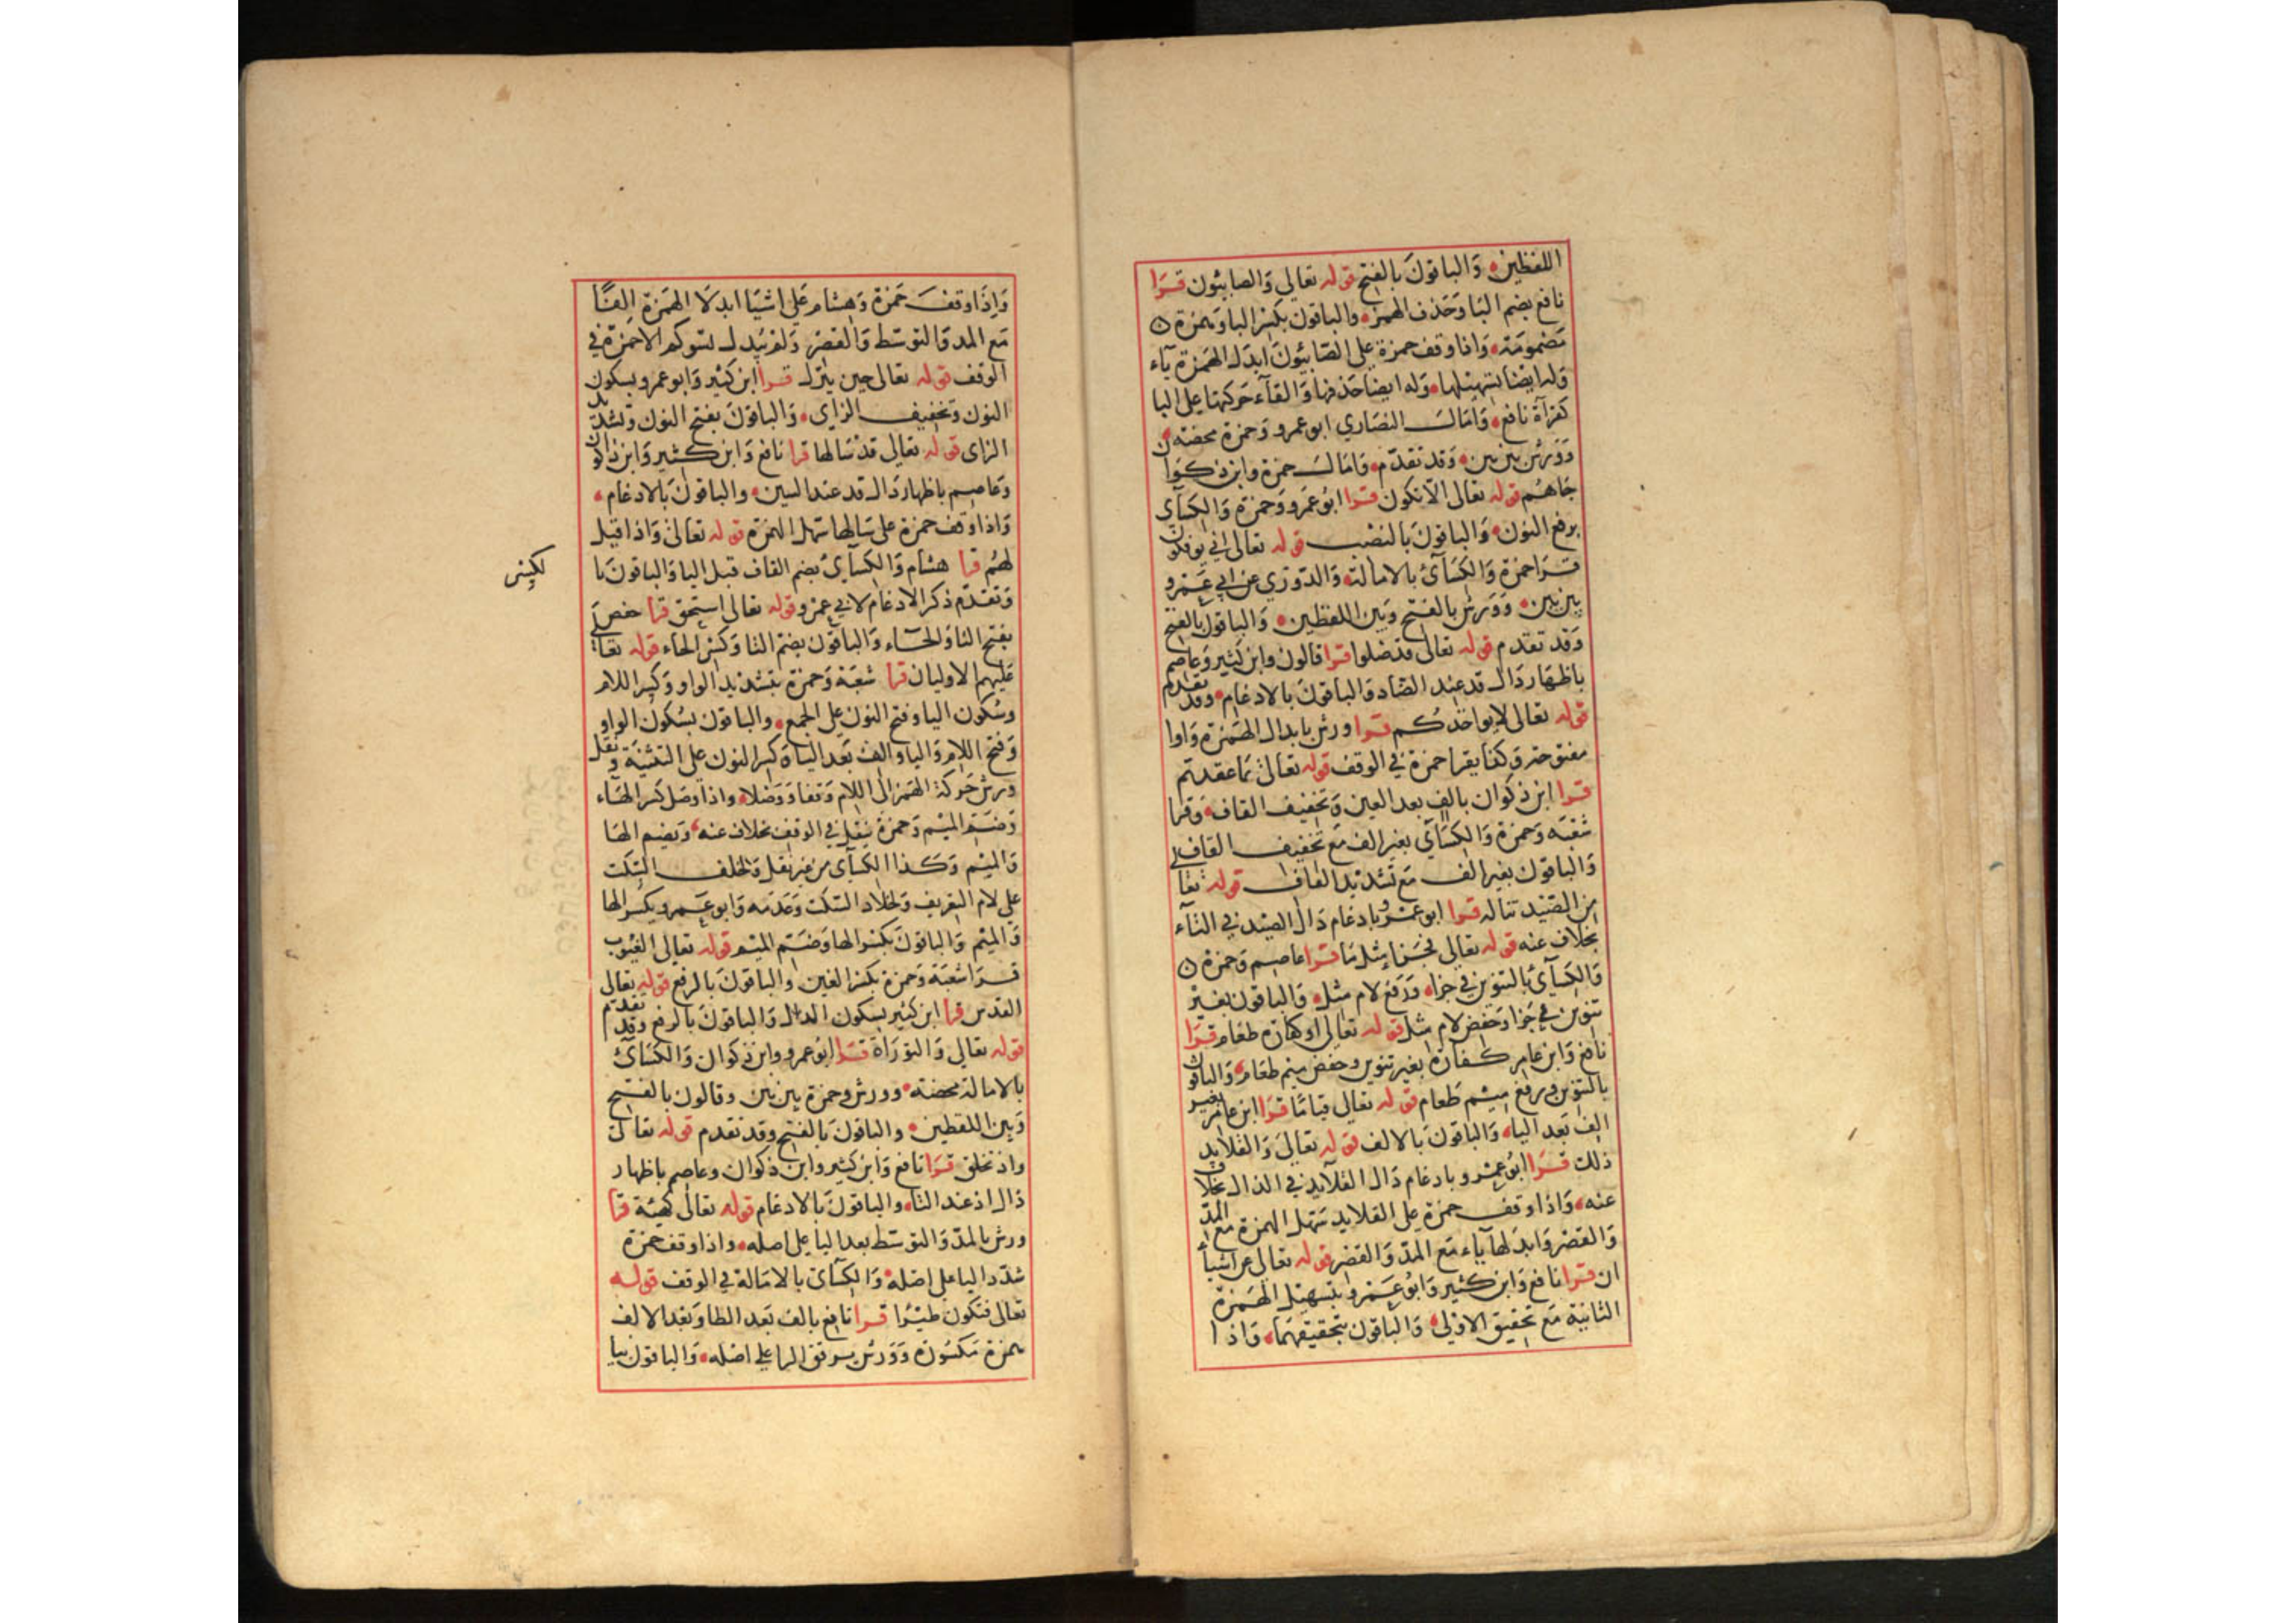 اللفظين وَالباقونَ بالفتح قوله تعالى وَالصابئون قرَا
نافع بضم البَا وَحَذف الهمز والباقون بكسر البا وَهمزة
مَضمومَة وَاذا وقف حمزة على الصّابئونَ ابدَل الهَمزة يآء
وَله ايضا تسهيلها وَله ايضا حَذفها وَالقآء حَركتها على البا
كقرآة نافع وَامَال النصَاري ابو عمرو وَحمزة محضة
وَوَرش بين بين وَقد تقدّم وَامَال حمزة وابن ذكوَان
جَاهُم قوله تعالى الّا تكون قرا ابوُ عَمرو وَحمزَة وَالكسَآى
برفع النون وَالباقونَ بالنصْب قوله تعالى انى يوفكون
قرَا حمزة وَالكسَآئ بالامالة وَالدّوري عن ابي عَمرو
بين بين وَوَرش بالفتح وَبين اللفظين وَالباقون بالفتح
وَقد تقدم قوله تعالى قد ضلوا قرا قالون وابن كثير وَعاصم
باظهَار دَال قد عند الضّاد وَالباقونَ بالادغام وقد تقدم
قوله تعالى لا يواخذكم قرا ورش بابدال الهَمزة وَاوا
مفتوحة وَكذا يقرا حمزة في الوقف قوله تعالى بما عقدتم
قرا ابن ذكوان بالف بعد العين وَتخفيف القاف وَقرا
شعْبَه وَحمزة وَالكسَآي بغير الف مَع تخفيف القاف
وَالباقون بغير الف مَع تَشديد القاف قوله تعالى
من الصّيد تناله قرا ابو عمْرو بادغام دَال الصيد في التآء
بخلاف عنه قوله تعالى فجَزاء مثل مَا قرا عاصم وَحمزة
وَالكسَآئ بالتنوين في جزاء وَرَفع لام مثل وَالباقون بغير
تنوين في جَزا وَخفض لام مثل قوله تعالى او كفارة طعام قرَا
نافع وَابن عامر كفارة بغير تنوين وخفض ميم طعَام وَالباقون
بالتنوين ورفع ميم طَعام قوله تعالى قيامًا قرَا ابن عامر بغير
الف بَعد اليا وَالباقونَ بالالف قوله تعالى وَالقلايد
ذلك قرَا ابوُ عمْرو بادغام دَال القلآيد في الذال بخلاف
عنه وَاذا وقف حمزة على القلايد سَهل الهمزة مع المدّ
وَالقصْر وَابدلهَا يآء مَع المَدّ وَالقصر قوله تعالى عن اشيآ
ان قرا نافع وَابن كثير وَابوُ عَمرو بتسهيل الهَمزة
الثانية مَع تحقيق الاولى وَالباقون بتحقيقهمَا وَاذا
وَاذَا وَقفَ حَمزة وَهشام عَلى اشيَا ابدلَا الهَمزة الفًا
مَع المد وَالتوسّط وَالقصْر وَلم يُبدل تسوكم الا حَمزة في
الوقف قوله تعالى حين ينزل قرا ابن كثير وَابو عمرو بسكون
النون وتخفيف الزاى وَالباقونَ بفتح النون وَتشديد
الزاى قوله تعالى قد سَالها قرا نافع وَابن كثير وَابن ذكوان
وعاصم باظهار دَال قد عند السين والباقونَ بالادغام
وَاذا وَقف حمزة على سَالها سَهل الهمزة قوله تعالى وَاذا قيل
لهُم قرا هشام وَالكسَآئ بضم القاف قبل اليا وَالباقونَ بالكسر
وَتقدّم ذكر الادغام لابي عمرو قوله تعالى استحق قرا حفص
بفتح التا وَالحآء وَالباقون بضم التا وَكسْر الحَاء قوله تعالى
عَليهم الاوليان قرا شعبَة وَحمزة بتشديد الواو وَكسر اللام
وسُكون اليا وفتح النون على الجمع والباقون بسُكون الواو
وَفتح اللام وَاليا والف بَعد اليا وَكسر النون على التثنيَة وَنقل
ورش حَركة الهَمزة الى اللام وَقفا وَوَصْلا واذا وصَل كسر الهَاء
وَضَمّ الميْم وَحمزة ينقل في الوقف بخلاف عنه وَيضم الهَا
وَالميْم وَكذا الكسآى من غير نقل وَلخلف السّكت
على لام التعريف وَلخلاد السّكت وَعَدَمه وَابو عَمرو بكسْر الها
وَالميْم وَالباقونَ بكسْر الها وَضَم الميْم قوله تعالى الغيُوب
قرَا شعْبَة وَحمزة بكسْر الغين وَالباقونَ بالرفع قوله تعالى
القدس قرا ابن كثير بسكون الدال وَالباقونَ بالرفع وَقد تقدّم
قوله تعالى وَالتورَاة قرَا ابوُ عمرو وابن ذكوان وَالكسَآئ
بالامالة محضة وورش وحمزة بين بين وقالون بالفتح
وَبين اللفظين والباقونَ بالفتح وقد تقدم قوله تعالى
واذ تخلق قرَا نافع وَابن كثير وابن ذكوان وعاصم باظهار
ذال اذ عند التا وَالباقونَ بالادغام قوله تعالى كهيئة قرا
ورش بالمدّ وَالتوسّط بعد اليا على اصله واذا وقف حمزة
شدّد اليا على اصْله وَالكسآئ بالامَالة في الوقف قوله
تعالى فتكون طيْرًا قرا نافع بالف بَعد الطا وَبَعد الالف
همزة مَكسُورة وَوَرش يرقق الرا على اصله وَالباقون بيا